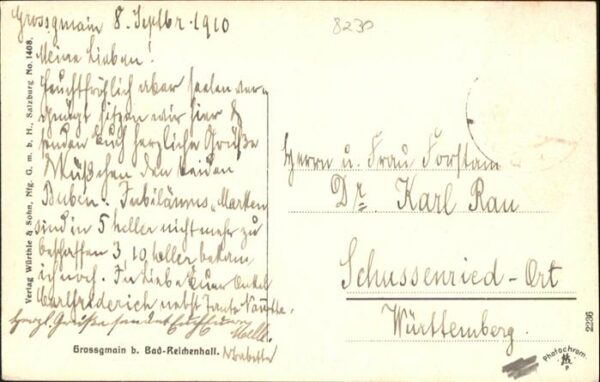 Grossgmain 8. Septbr. 1910
8230
Meine Lieben!
Feuchtfröhlich aber seelenver-
gnügt sitzen wir hier &
senden Euch herzliche Grüße
Küßchen den beiden
Buben. Jubiläums-Marken
sind in 5 heller nicht mehr zu
beschaffen 3, 10 heller bekam
ich noch. In Liebe Euer Onkel
Carl Friedrich nebst Tante
Herzl. Grüße sendet Euch
Babette
Herrn u. Frau Forstam
Dr. Karl Rau
Schussenried-Ort
Württemberg.
Verlag Würthle & Sohn, Nfg. G. m. b. H., Salzburg No. 1408.
Grossgmain b. Bad-Reichenhall.
2236
Photochrom
P